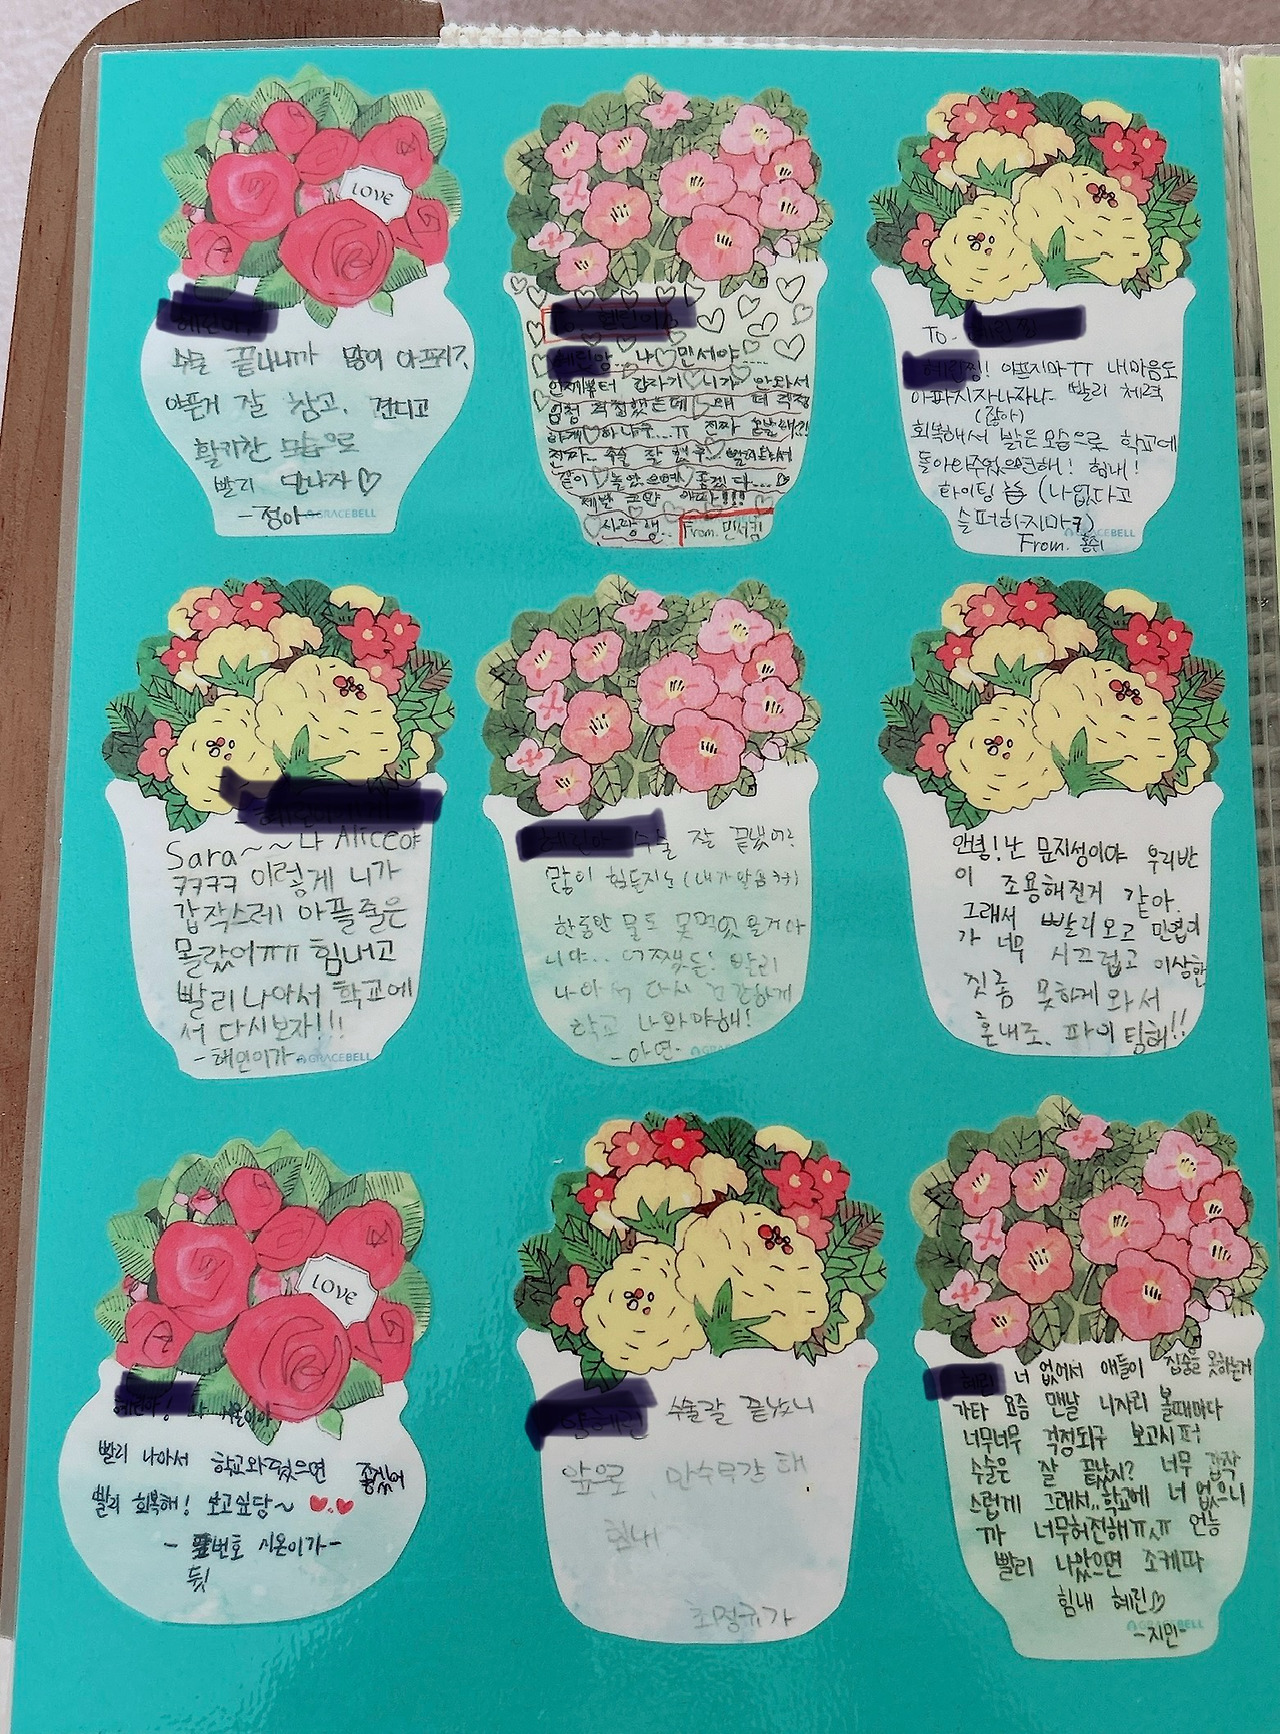 LOVE
수술 끝나니까 많이 아프지?
아픈거 잘 참고, 견디고
활기찬 모습으로
빨리 만나자♡
-정아-
GRACEBELL
나 민세야....
언제부터 갑자기 니가 안와서
엄청 걱정했는데
진짜.. 수술 잘 했구
같이 놀았으면 좋겠다...
제발 그만 아파!!!!
사랑행..
From. 민서킴
To-
아프지마ㅠㅠ 내마음도
아파지자나자나~ 빨리 체력
(잖아)
회복해서 밝은모습으로 학교에
돌아와주었으면해! 힘내!
화이팅 (나없다고
슬퍼하지마ㅋ)
From.
GRACEBELL
Sara~~나 Alice야
ㅋㅋㅋㅋ 이렇게 니가
갑작스레 아플줄은
몰랐어ㅠㅠㅠ 힘내고
빨리나아서 학교에
서 다시보자!!!
-해인이가-
GRACEBELL
수술 잘 끝났어?
많이 힘든지는
한동안 물도 못먹었을거아
니야.. 어쨋든! 빨리
나아서 다시 건강하게
학교 나와야해!
-아연-
안녕! 난 문지성이야 우리반
이 조용해진거 같아.
그래서 빨리오고 민엽이
가 너무 시끄럽고 이상한
짓좀 못하게 와서
혼내줘. 파이팅해!!
LOVE
나 시온이야
빨리 나아서 학교와줬으면 좋겠어
빨리 회복해! 보고싶당~ ♥.♥
- 번호 시온이가-
뒷
수술잘 끝났으니
앞으로 만수무강 해
힘내
최정규가
너 없어서 애들이 집중을 못하는거
가타 요즘 맨날 니자리 볼때마다
너무너무 걱정되구 보고시퍼
수술은 잘 끝났지? 너무 갑작
스럽게 그래서.. 학교에 너 없으니
까 너무허전해ㅠㅅㅠ 언능
빨리 나았으면 조케따
힘내 혜린♡
GRACEBELL
-지민-